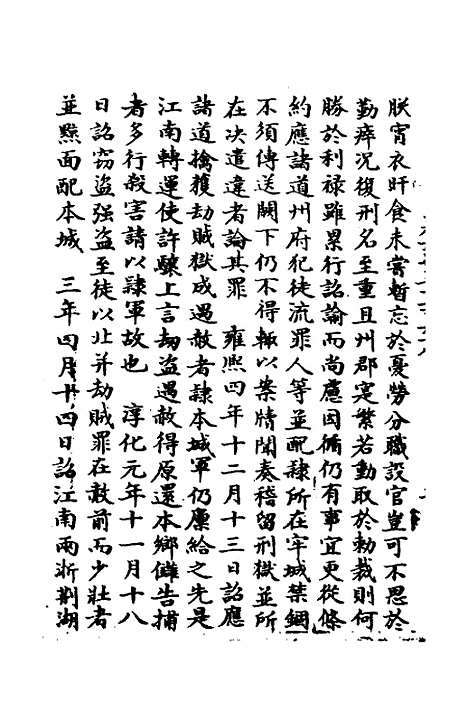 朕宵衣旰食未嘗暫忘於憂勞分職設官豈可不思於
勤瘁况復刑名至重且州郡寔繁若動取於勅裁則何
勝於利禄雖累行詔諭而尚慮因循仍有事宜更從條
約應諸道州府犯徒流罪人等並配隸所在牢城禁錮
不須傳送闕下仍不得輒以案牘聞奏稽留刑獄並所
在决遣違者論其罪　雍熙四年十二月十三日詔應
諸道擒獲劫賊獄成遇赦者隸本城軍仍廩給之先是
江南轉運使許驤上言劫盜遇赦得原還本鄉讎告捕
者多行殺害請以隸軍故也　淳化元年十一月十八
日詔竊盜强盜至徒以北并劫賊罪在赦前而少壯者
並黥面配本城　三年四月十四日詔江南兩浙荆湖